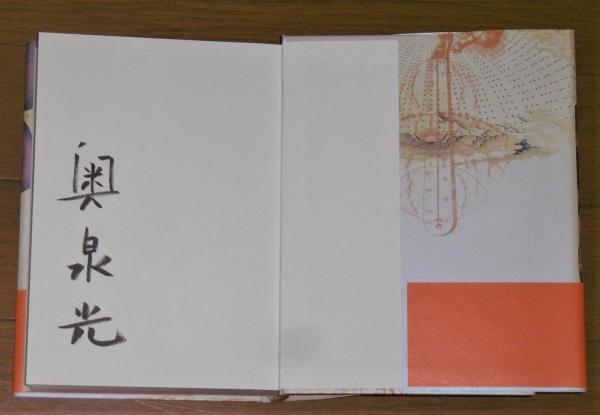 奥泉光